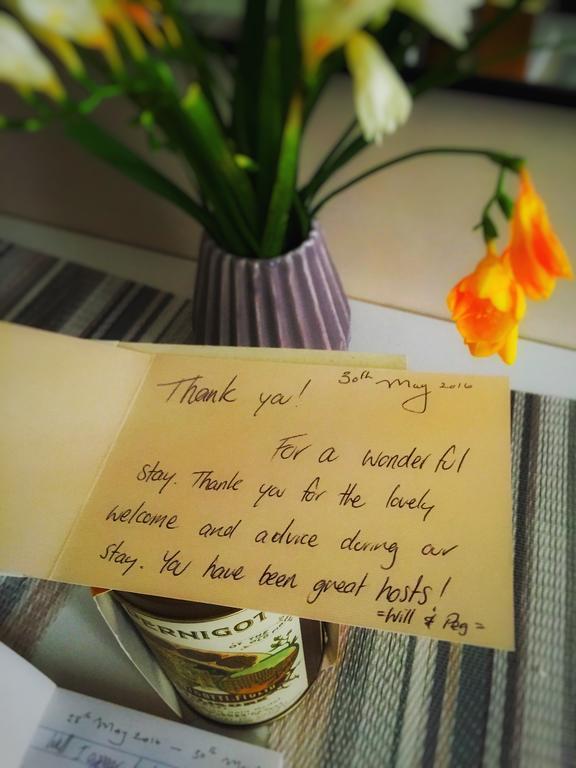 Thank you!
30th May 2016
For a wonderful
stay. Thank you for the lovely
welcome and advice during our
stay. You have been great hosts!
=Will & Peg=
ERNIGOT
28th May 2016 - 30th May